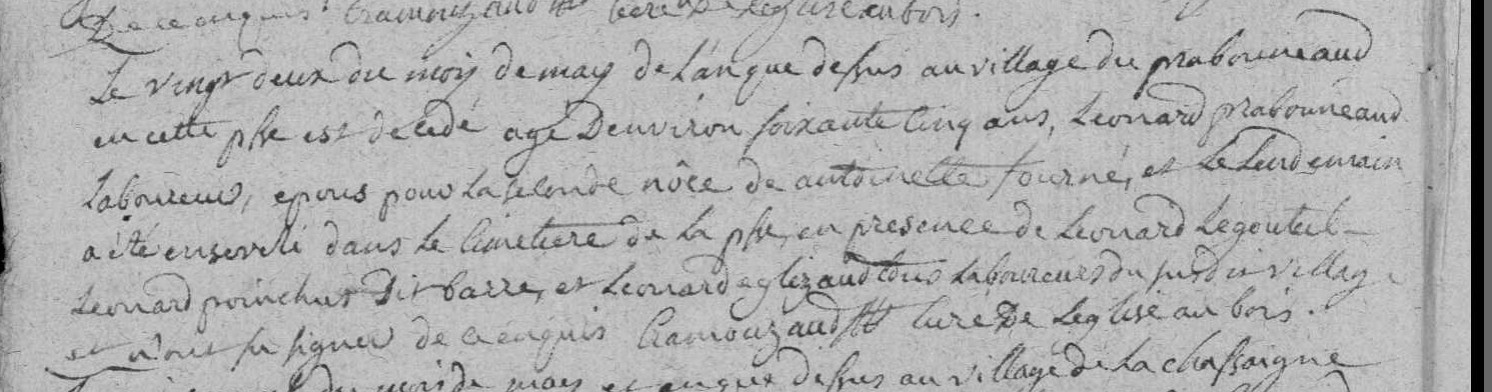 De ce enquis Cramouzaud curé De Leglise au bois.
Le vingt deux du mois de may de Lan que dessus au village du prabonneaud
en cette psse est décédé agé Denviron soixante cinq ans, Leonard prabonneaud
Laboureur, epoux pour la seconde nôce de antoinette fourné, et Le Lendemain
a été enseveli dans Le Cimetiere de La psse, en presence de Leonard Legouteil
Leonard poinchut Dit barre, et Leonard eglizaud tous Laboureurs du susdit village
et n'ont su signer de ce enquis Cramouzaud curé De Leglise au bois.
du mois de may et an que dessus au village de La chassaigne